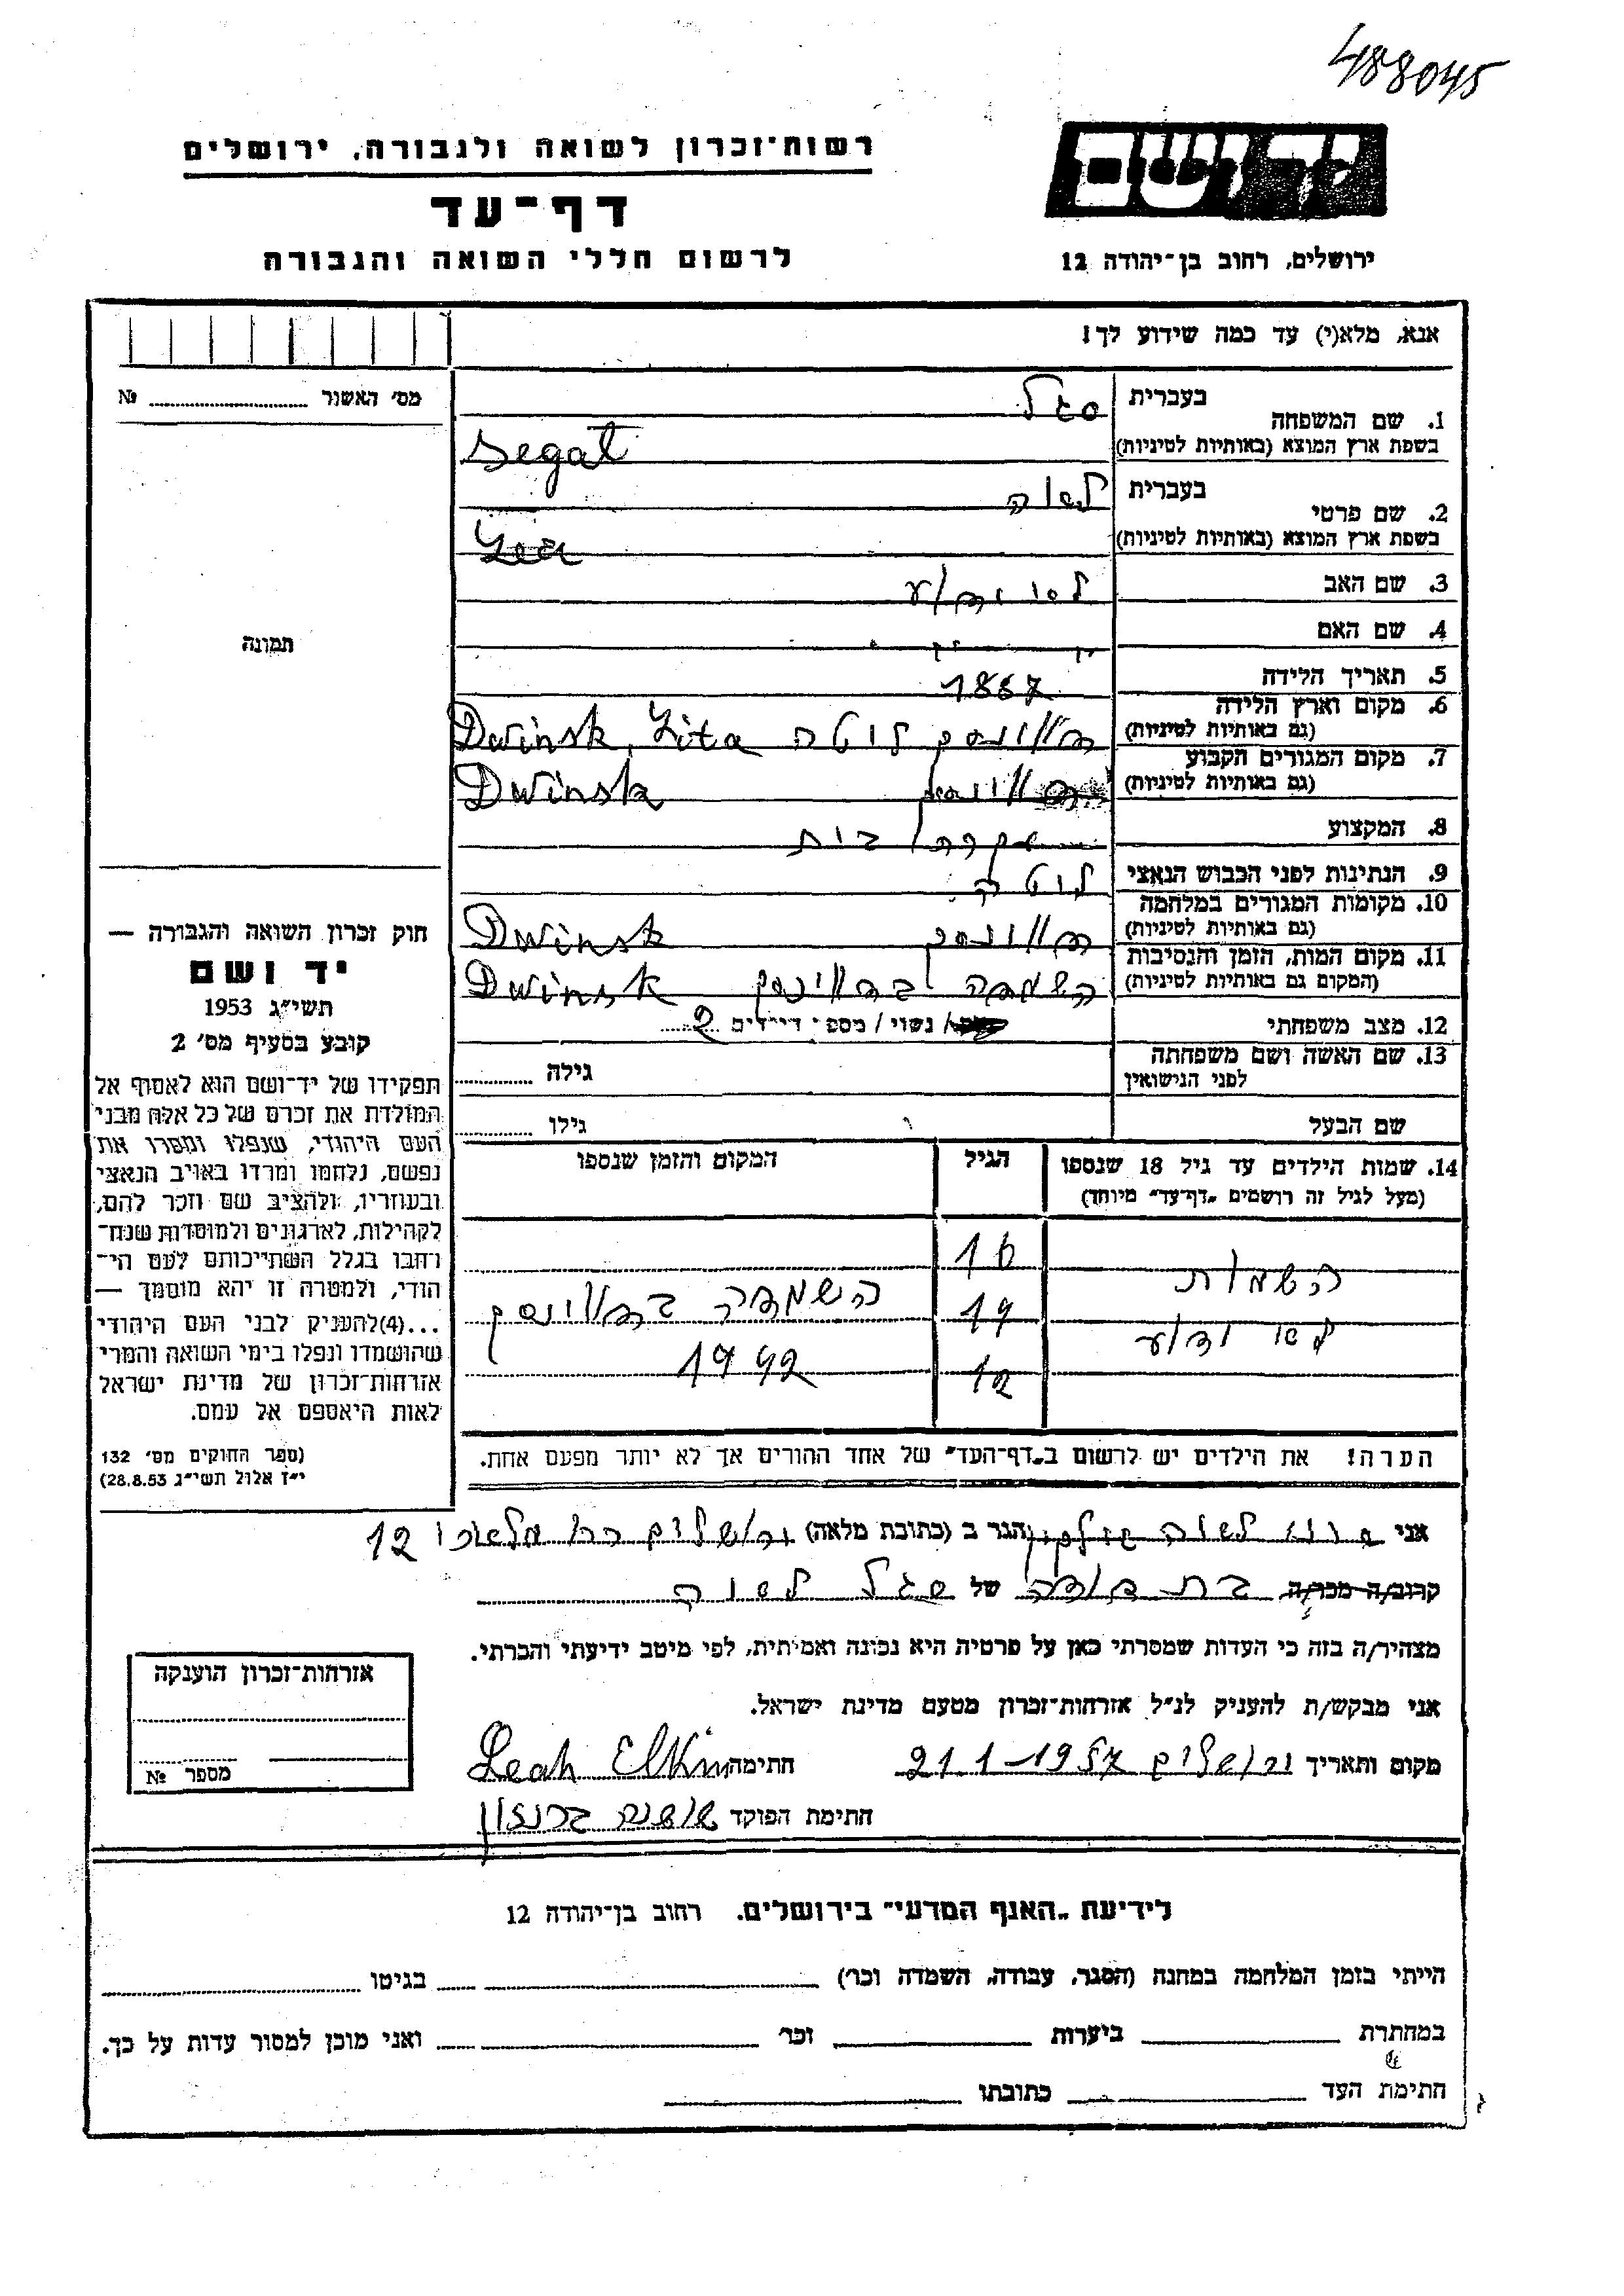 488045
יד ושם
רשות־זכרון לשואה ולגבורה, ירושלים
דף־עד
לרשום חללי השואה והגבורה
ירושלים, רחוב בן־יהודה 12
אנא, מלא(י) עד כמה שידוע לך!
מס׳ האשור № 
1. שם המשפחה
בעברית סגל
בשפת ארץ המוצא (באותיות לטיניות) Segal
2. שם פרטי
בעברית לאה
בשפת ארץ המוצא (באותיות לטיניות) Lea
3. שם האב לא ידוע
4. שם האם
5. תאריך הלידה
6. מקום וארץ הלידה
(גם באותיות לטיניות) דווינסק ליטה Dwinsk, Lita
7. מקום המגורים הקבוע
(גם באותיות לטיניות) דווינסק Dwinsk
8. המקצוע עקרת בית
9. הנתינות לפני הכבוש הנאצי ליטה
10. מקומות המגורים במלחמה
(גם באותיות לטיניות) דווינסק Dwinsk
11. מקום המות, הזמן והנסיבות
(המקום גם באותיות לטיניות) השמדה בדווינסק Dwinsk
12. מצב משפחתי / נשוי / מספר ילדים 2
13. שם האשה ושם משפחתה
לפני הנישואין
גילה
שם הבעל
גילו
14. שמות הילדים עד גיל 18 שנספו
(מעל לגיל זה רושמים „דף־עד״ מיוחד)
הגיל
המקום והזמן שנספו
השמות
לא ידוע
16
14
12
השמדה בדווינסק
1942
הערה! את הילדים יש לרשום ב„דף־העד״ של אחד ההורים אך לא יותר מפעם אחת.
תמונה
חוק זכרון השואה והגבורה —
יד ושם
תשי״ג 1953
קובע בסעיף מס׳ 2
תפקידו של יד־ושם הוא לאסוף אל
המולדת את זכרם של כל אלה מבני
העם היהודי, שנפלו ומסרו את
נפשם, נלחמו ומרדו באויב הנאצי
ובעוזריו, ולהציב שם וזכר להם,
לקהילות, לארגונים ולמוסדות שנח־
רבו בגלל השתייכותם לעם הי־
הודי, ולמטרה זו יהא מוסמך —
...(4)להעניק לבני העם היהודי
שהושמדו ונפלו בימי השואה והמרי
אזרחות־זכרון של מדינת ישראל
לאות היאספם אל עמם.
(ספר החוקים מס׳ 132
י״ז אלול תשי״ג 28.8.53)
אני לאה הגר ב (כתובת מלאה) ירושלים 12
קרוב/ה מכר/ה בת דודה של סגל לאה
מצהיר/ה בזה כי העדות שמסרתי כאן על פרטיה היא נכונה ואמיתית, לפי מיטב ידיעתי והכרתי.
אני מבקש/ת להעניק לנ״ל אזרחות־זכרון מטעם מדינת ישראל.
מקום ותאריך ירושלים 21.1-1957 חתימה Leah Elkin
חתימת הפוקד
אזרחות־זכרון הוענקה
מספר №
לידיעת „האגף המדעי״ בירושלים. רחוב בן־יהודה 12
הייתי בזמן המלחמה במחנה (הסגר, עבודה, השמדה וכר׳) בגיטו
במחתרת ביערות וכר׳ ואני מוכן למסור עדות על כך.
חתימת העד כתובתו